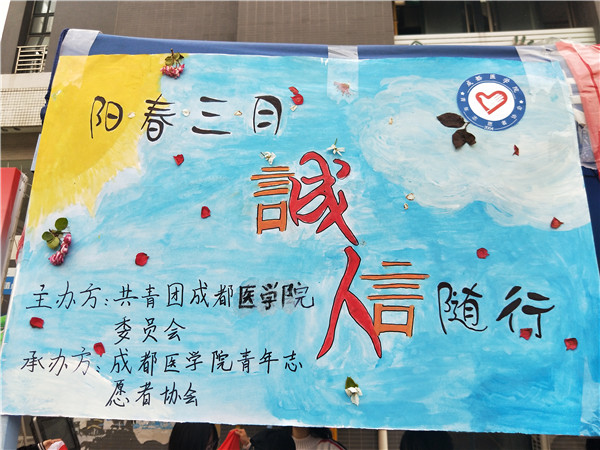 阳春三月
誠信随行
主办方:共青团成都医学院
委员会
承办方:成都医学院青年志
愿者协会
成都医学院